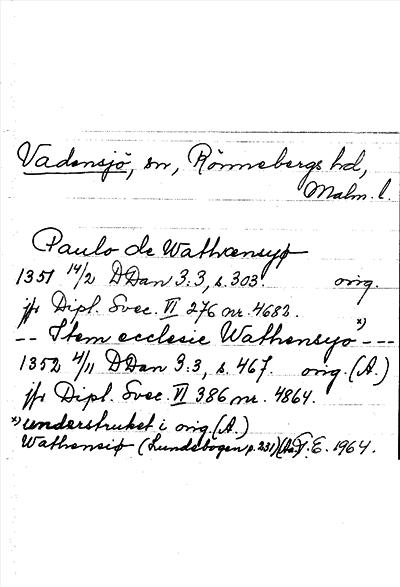 Vadensjö, sn, Rönnebergs hd,
Malm. l.
Paulo de Wathænsyø
1351 14/2 DDan 3:3, s. 303. orig.
jfr Dipl. Svec. VI 276 nr. 4682.
-- Item ecclesie Wathensyo x) ---
1352 4/11 DDan 3:3, s. 467. orig. (A.)
jfr Dipl. Svec. VI 386 nr. 4864.
x) understruket i orig. (A.)
Wathensiø (Lundebogen p. 231) T. E. 1964.